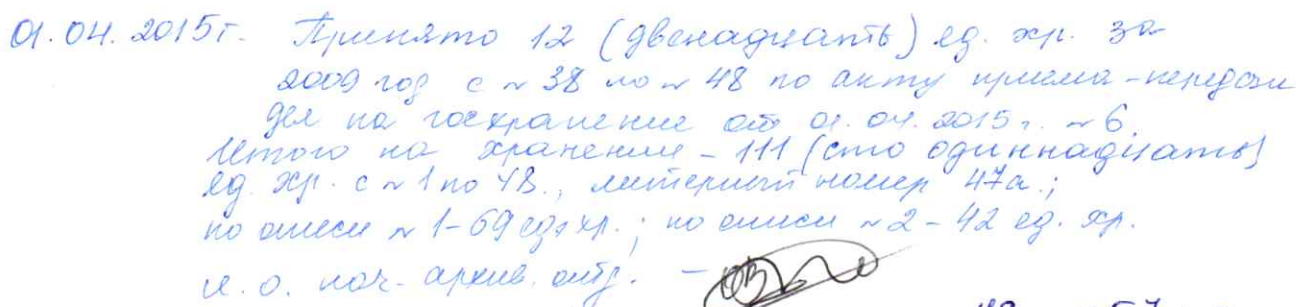 01.04.2015г. Принято 12 (двенадцать) ед. хр. за
2009 год с № 38 по № 48 по акту приема-передачи
дел на госхранение от 01.04.2015 г. № 6.
Итого на хранении - 111 (сто одиннадцать)
ед. хр. с № 1 по 48., литерный номер 47а.;
по описи № 1-69 ед. хр.; по описи № 2-42 ед. хр.
и.о. нач. архив. отд. -